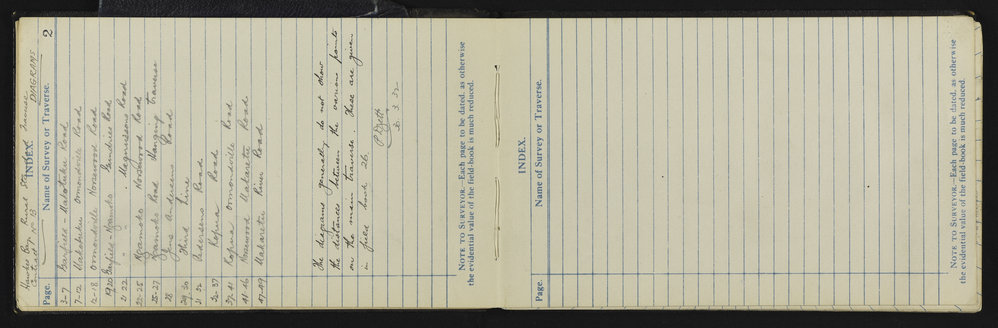 Hawkes Bay Rural Standard Traverse
Contract No 13
DIAGRAMS
2
INDEX.
Page. Name of Survey or Traverse.
3-7 Garfield - Matotuku Road
7-12 Ormondville Road
12-18 Ormondville Norsewood Road
19-20 Garfield - Road
21.22 " " Magnussons Road
22-25 Norsewood Road
25-27 Road Hanging traverse
28 Jens Andersens Road
29.30 Third Line
31 32 Pedersens Road
32-37 Kopua Road
37-41 Kopua Ormondville Road
41-46 Norsewood Makaretu Road
47-49 Makaretu River Road
The diagrams generally do not show
the distances between the various points
on the main traverse. These are given
in field book 26.
6. 3. 32
NOTE TO SURVEYOR.—Each page to be dated, as otherwise
the evidential value of the field-book is much reduced.
INDEX.
Page. Name of Survey or Traverse.
NOTE TO SURVEYOR.—Each page to be dated, as otherwise
the evidential value of the field-book is much reduced.